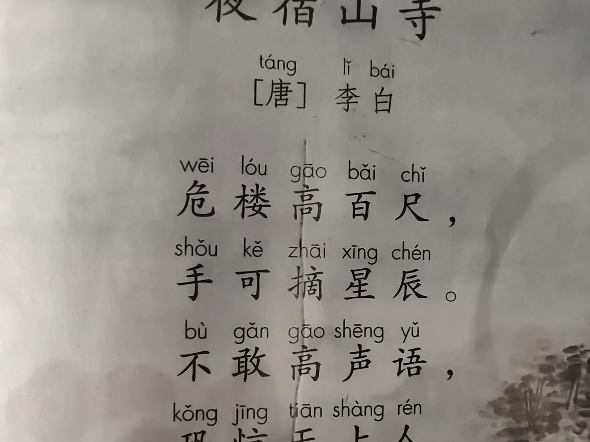 夜宿山寺
táng lǐ bái
[唐] 李白
wēi lóu gāo bǎi chǐ
危楼高百尺，
shǒu kě zhāi xīng chén
手可摘星辰。
bù gǎn gāo shēng yǔ
不敢高声语，
kǒng jīng tiān shàng rén
恐惊天上人